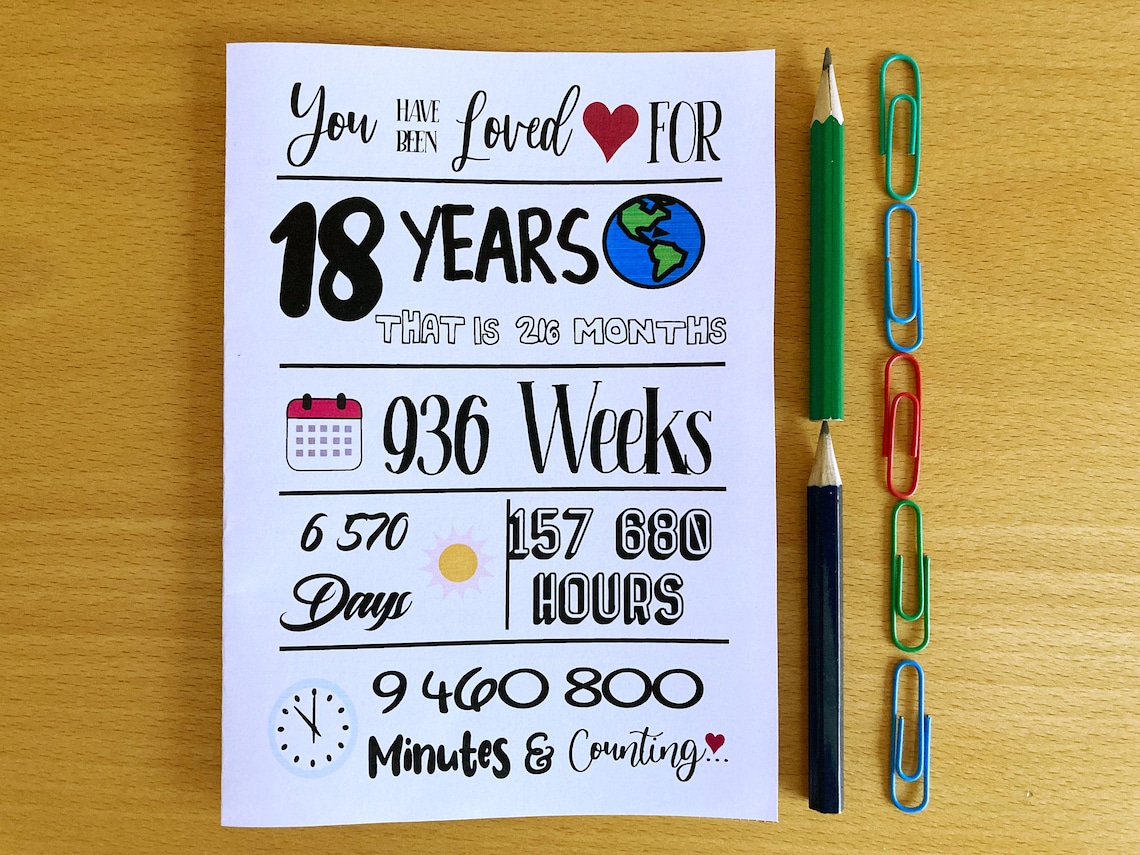 You HAVE BEEN Loved FOR
18 YEARS
THAT IS 216 MONTHS
936 Weeks
6 570
Days
157 680
HOURS
9 460 800
Minutes & Counting...